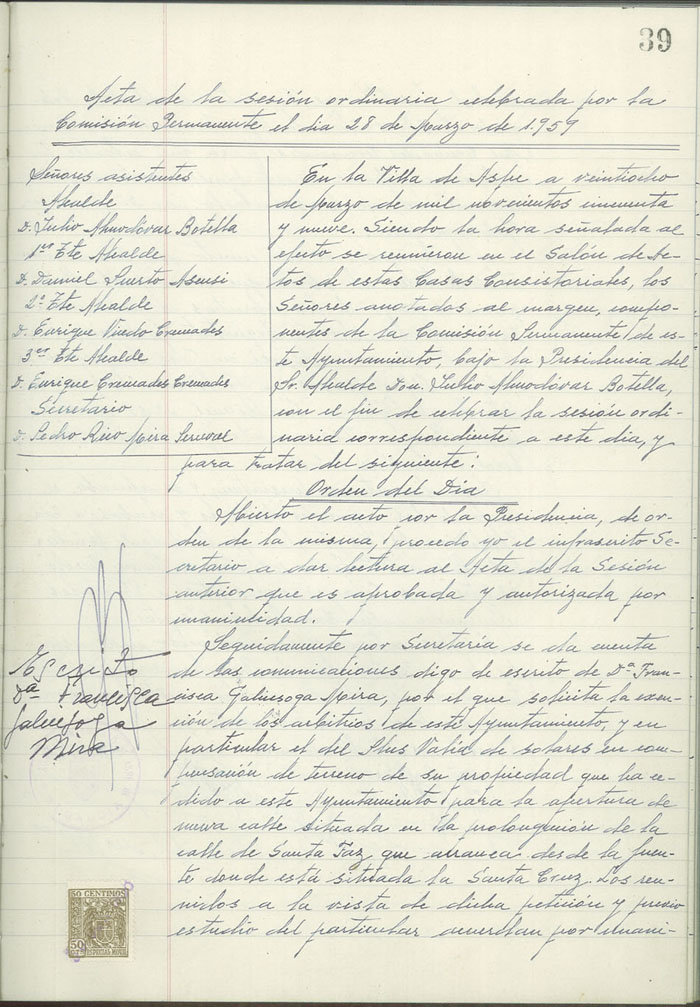 39
Acta de la sesión ordinaria celebrada por la
Comisión Permanente el dia 28 de Marzo de 1.959
Señores asistentes
Alcalde
D. Julio Almodóvar Botella
1er Tte Alcalde
D. Daniel Puerto Asensi
2º Tte Alcalde
D. Enrique Cremades
3er Tte Alcalde
D. Enrique Cremades Cremades
Secretario
D. Pedro Rico Mira
En la Villa de Aspe a veintiocho
de Marzo de mil novecientos cincuenta
y nueve. Siendo la hora señalada al
efecto se reunieron en el Salón de Ac-
tos de estas Casas Consistoriales, los
Señores anotados al margen, compo-
nentes de la Comisión Permanente de es-
te Ayuntamiento, bajo la Presidencia del
Sr. Alcalde Don Julio Almodóvar Botella,
con el fin de celebrar la sesión ordi-
naria correspondiente a este dia, y
para tratar del siguiente:
Orden del Dia
Abierto el acto por la Presidencia, de or-
den de la misma, procedo yo el infrascrito Se-
cretario a dar lectura al Acta de la Sesión
anterior que es aprobada y autorizada por
unanimidad.
Seguidamente por Secretaría se da cuenta
de las comunicaciones digo de escrito de Dª Fran-
cisca Galiesoga Mira, por el que solicita la exen-
ción de los arbitrios de este Ayuntamiento, y en
particular el del Plus Valia de solares en com-
pensación de terreno de su propiedad que ha ce-
dido a este Ayuntamiento para la apertura de
nueva calle situada en la prolongación de la
calle de Santa Faz que arranca desde la fuen-
te donde está situada la Santa Cruz. Los reu-
nidos a la vista de dicha petición y previo
estudio del particular acuerdan por unani-
Escrito
Dª Francisca
Galiesoga
Mira
50 CENTIMOS
50
ESPECIAL MOVIL